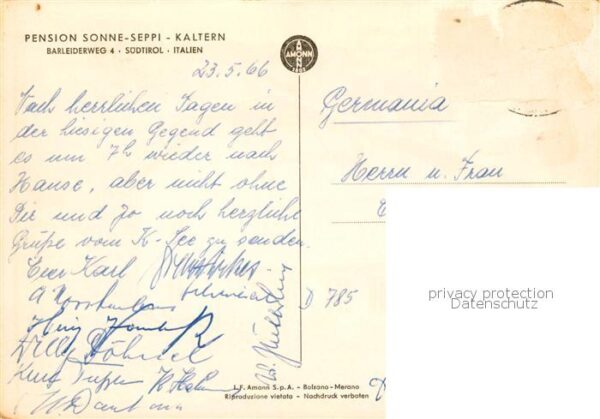 PENSION SONNE-SEPPI - KALTERN
BARLEIDERWEG 4 · SÜDTIROL · ITALIEN
AMONN
23.5.66
Nach herrlichen Tagen in
der hiesigen Gegend geht
es um 7h wieder nach
Hause, aber nicht ohne
Dir und Jo noch herzliche
Grüße vom K-See zu senden.
Euer Karl
Willy
Kurt
Germania
Herrn u. Frau
D 785
privacy protection
Datenschutz
L.F. Amonn S.p.A. - Bolzano-Merano
Riproduzione vietata - Nachdruck verboten